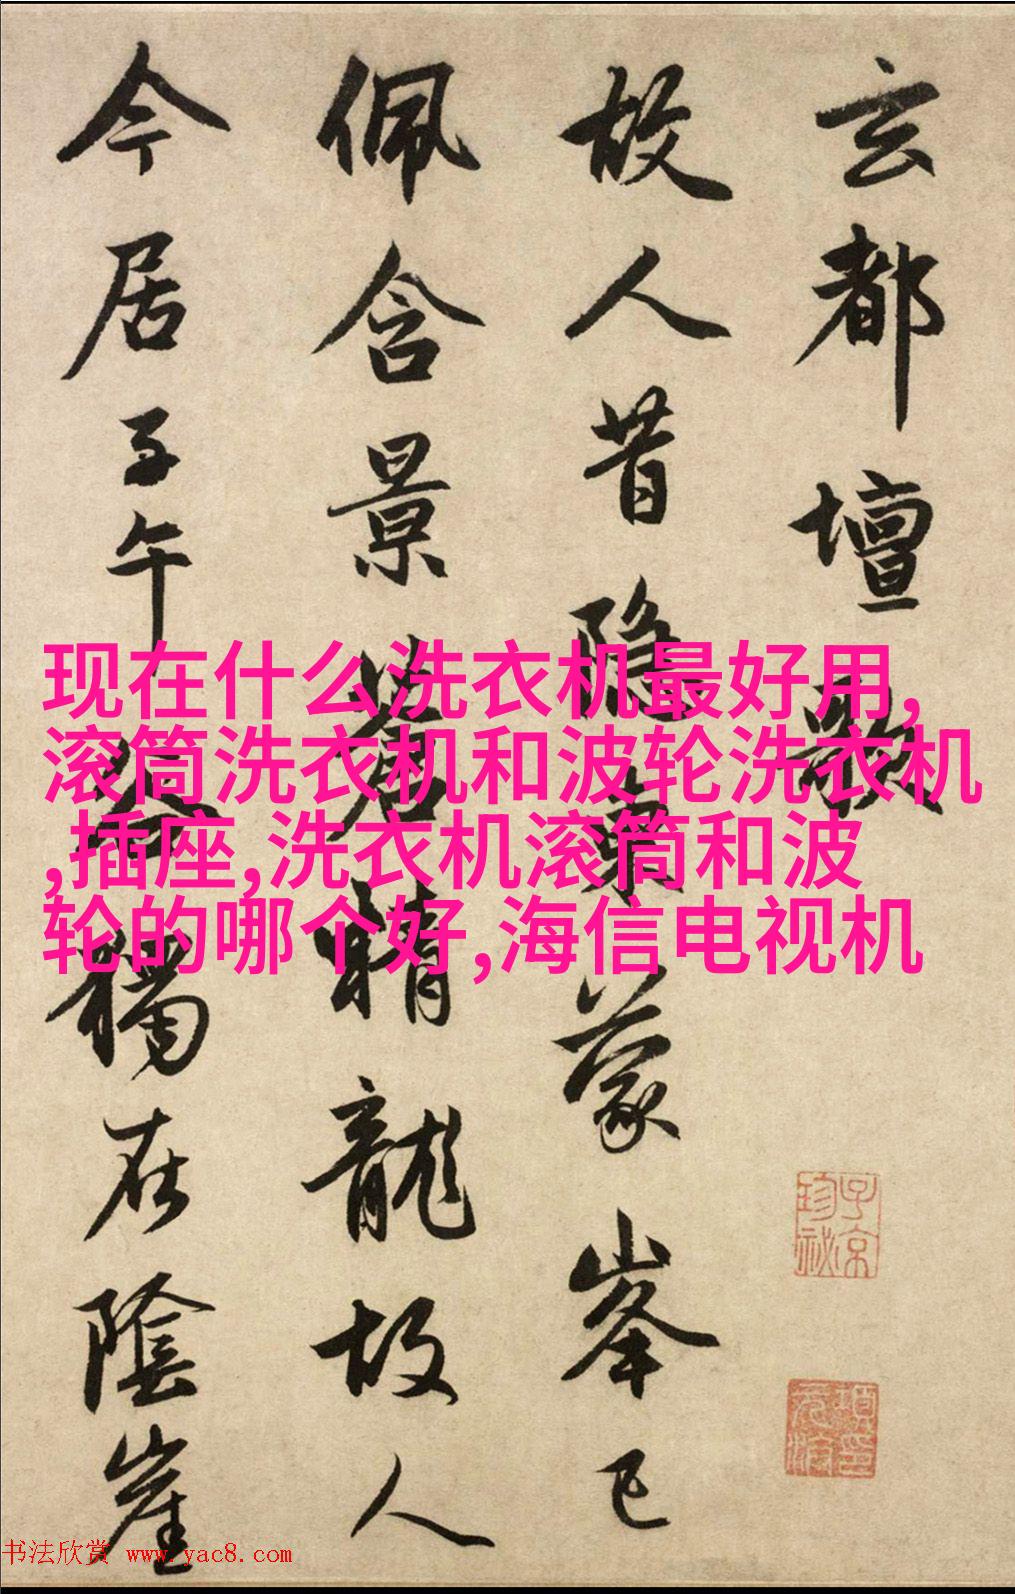 玄都壇歌
故人昔隱東蒙峯已
佩含景蒼精龍故人
今居子午谷獨在陰崖
现在什么洗衣机最好用,
滚筒洗衣机和波轮洗衣机
,插座,洗衣机滚筒和波
轮的哪个好,海信电视机
子京
珍祕
項元汴印
书法欣赏 www.yac8.com